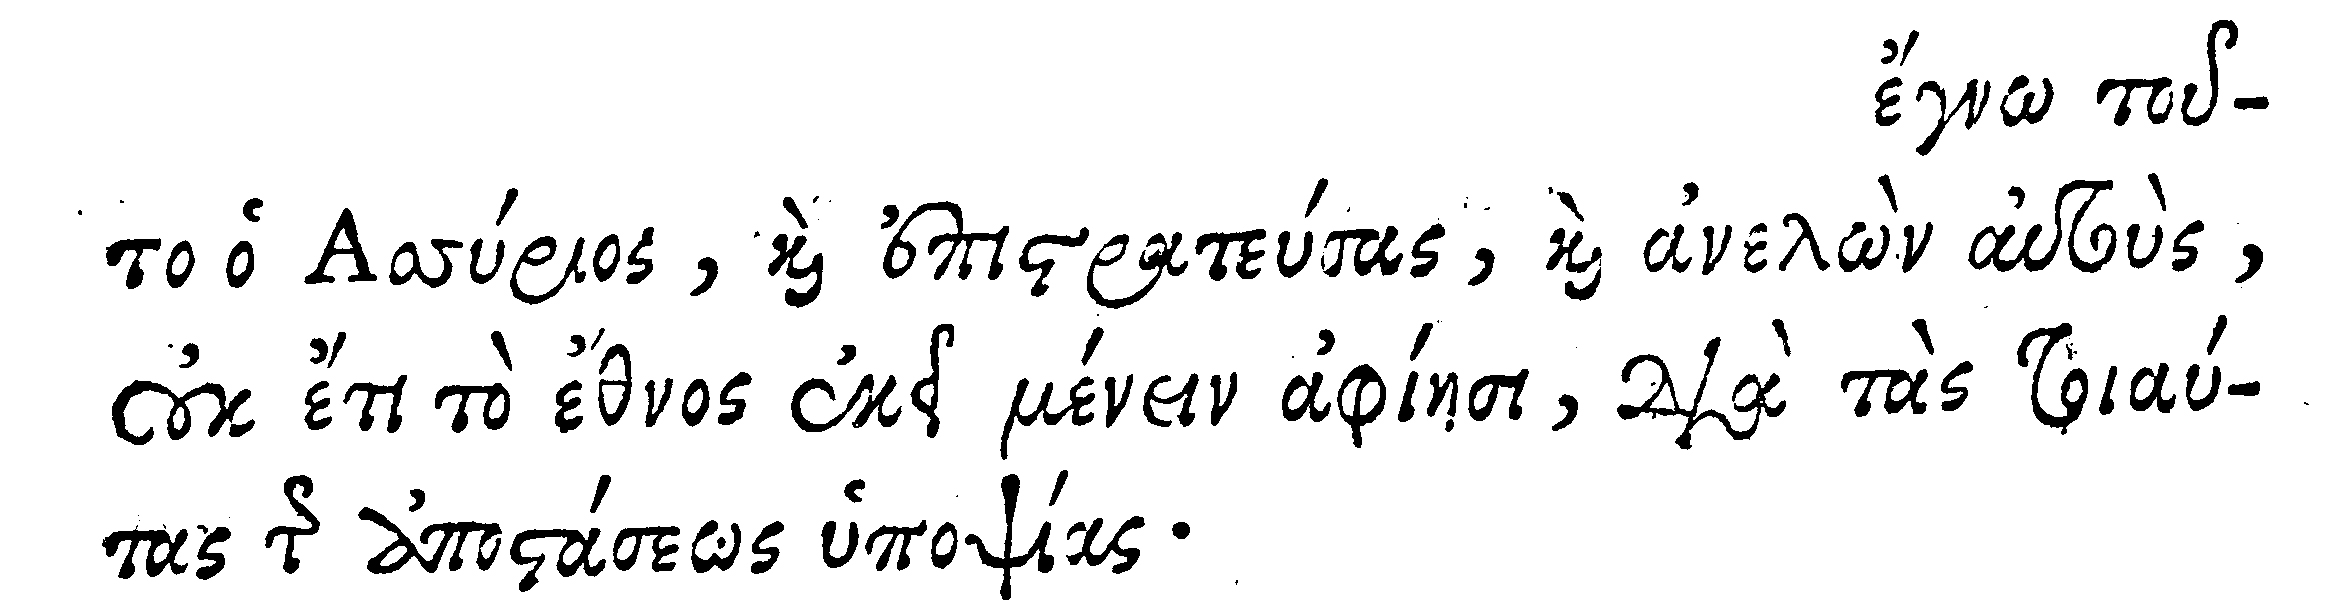 ἔγνω τοῦ-
το ὁ Ἀσσύριος, καὶ ἐπιστρατεύσας, καὶ ἀνελὼν αὐτοὺς,
οὐκ ἔτι τὸ ἔθνος ἐκεῖ μένειν ἀφίησι, διὰ τὰς τοιαύ-
τας τῆς ἀποστάσεως ὑποψίας.